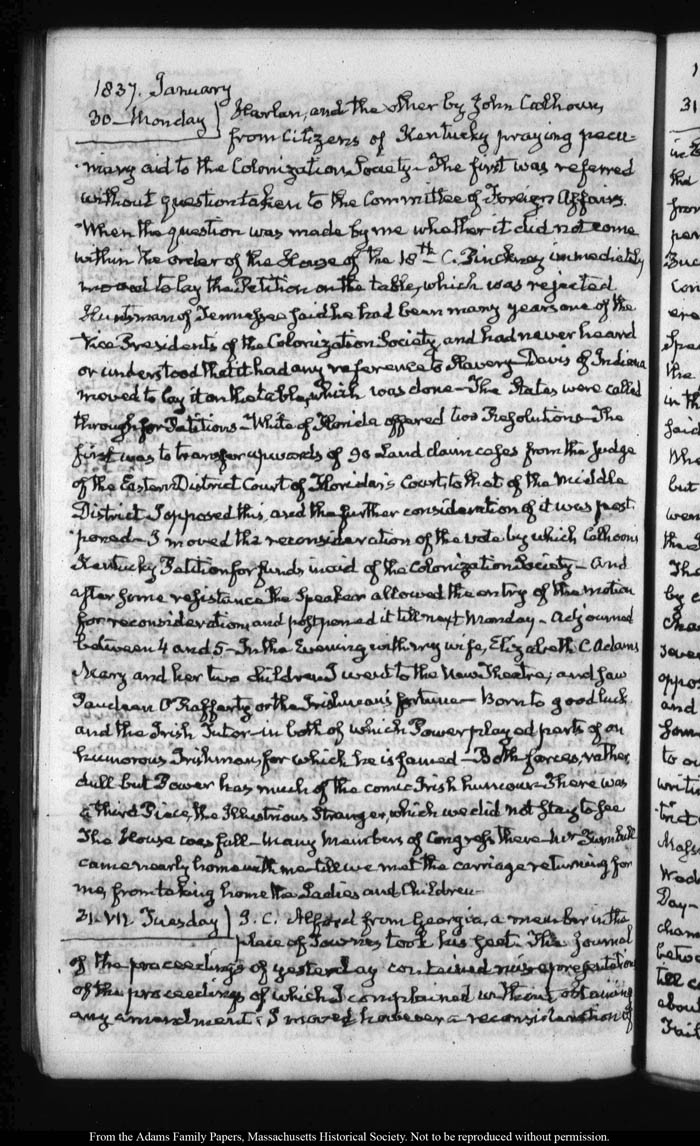 1837. January
30 - Monday } Harlan, and the other by John Calhoun,
from Citizens of Kentucky praying pecu-
niary aid to the Colonization Society - The first was referred
without question taken to the Committee of Foreign Affairs.
When the question was made by me whether it did not come
within the order of the House of the 18th C. Pinckney immediately
moved to lay the Petition on the table, which was rejected
Huntsman of Tennessee said he had been many years one of the
Vice Presidents of the Colonization Society, and had never heard
or understood that it had any reference to Slavery - Davis of Indiana
moved to lay it on the table, which was done - The States were called
through for Petitions - White of Florida offered two Resolutions - The
first was to transfer upwards of 90 Land claim cases from the Judge
of the Eastern District Court of Florida's Court, to that of the Middle
District I opposed this, and the further consideration of it was post
poned - I moved the reconsideration of the vote by which Calhoons
Kentucky Petition for funds in aid of the Colonization Society - And
after some resistance the Speaker allowed the entry of the motion
for reconsideration, and postponed it till next Monday - Adjourned
between 4 and 5 - In the Evening with my wife, Elizabeth C. Adams
Mary and her two children I went to the New Theatre; and saw
O'Rafferty or the Irishman's fortune - Born to good luck
and the Irish Tutor - in both of which Power played parts of an
humorous Irishman, for which he is famed - Both farces, rather
dull but Power has much of the comic Irish humour - There was
a third Piece, the Illustrious Stranger, which we did not stay to see
The House was full - many Members of Congress there - Mr Turnbull
came nearly home with me till we met the carriage returning for
me, from taking home the Ladies and Children -
31. VII. Tuesday } J. C. Alford from Georgia, a member in the
place of Townes took his seat. The Journal
of the proceedings of yesterday contained misrepresentations
of the proceedings of which I complained without obtaining
any amendment. I moved however a reconsideration of
From the Adams Family Papers, Massachusetts Historical Society. Not to be reproduced without permission.